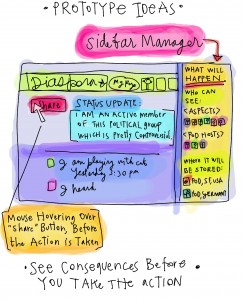 • PROTOTYPE IDEAS •
Sidebar Manager
Diaspora*
My Page
Share
STATUS UPDATE
I AM AN ACTIVE MEMBER
OF THIS POLITICAL GROUP
WHICH IS PRETTY CONTROVERSIAL
I am playing with cats
Yesterday 5:30 pm
I heard
WHAT WILL
HAPPEN
WHO CAN
SEE:
(ASPECTS)
(POD HOSTS)
WHERE IT WILL
BE STORED:
POD, SF, USA
POD, GERMANY
Mouse Hovering Over
"share" Button, Before
the Action is Taken
• SEE CONSEQUENCES BEFORE
YOU TAKE THE ACTION •